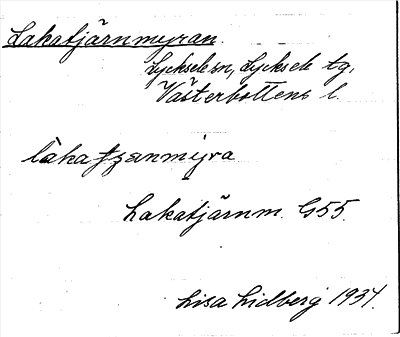 Lakatjärnmyran.
Lycksele sn, Lycksele tg,
Västerbottens l.
Lakatjärnm. G55.
Lisa Lidberg 1934.